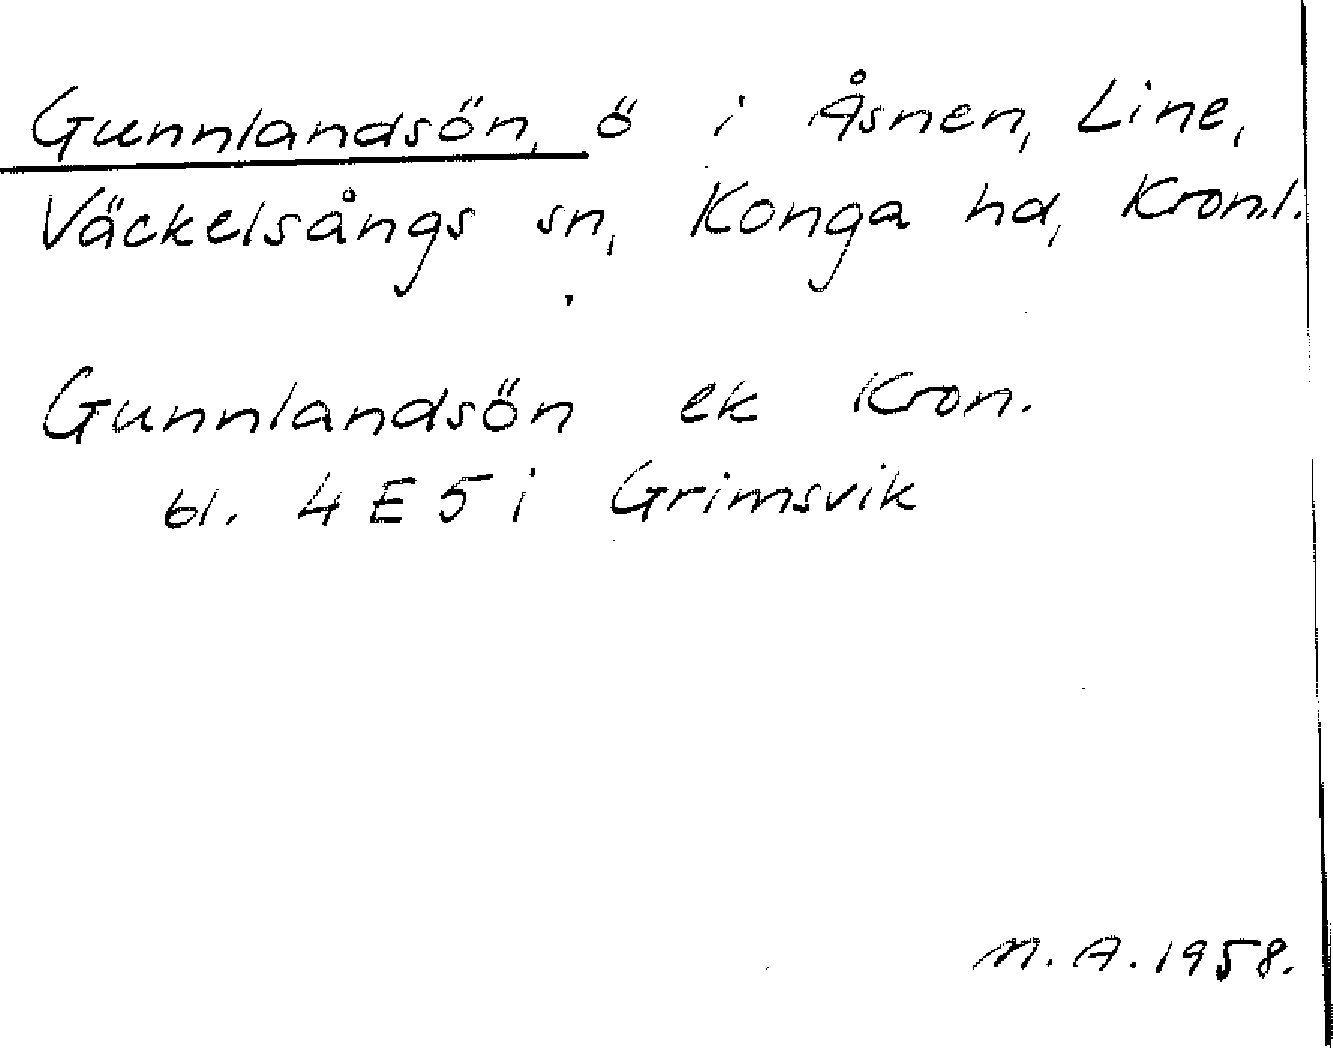 Gunnlandsön, ö i Åsnen, Line,
Väckelsångs sn, Konga hd, Kron.l.
Gunnlandsön ek Kron.
bl. 4 E 5 i Grimsvik
M. A. 1958.